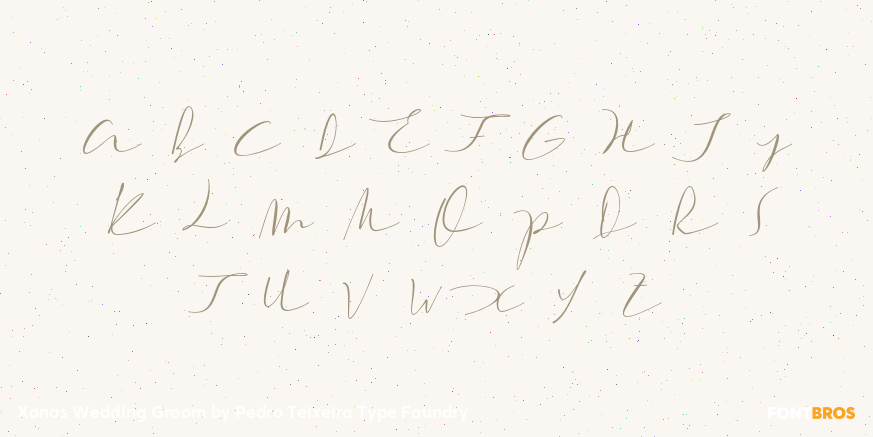 A B C D E F G H I J
K L M N O P Q R S
T U V W X Y Z
Xanas Wedding Groom by Pedro Teixeira Type Foundry
FONTBROS